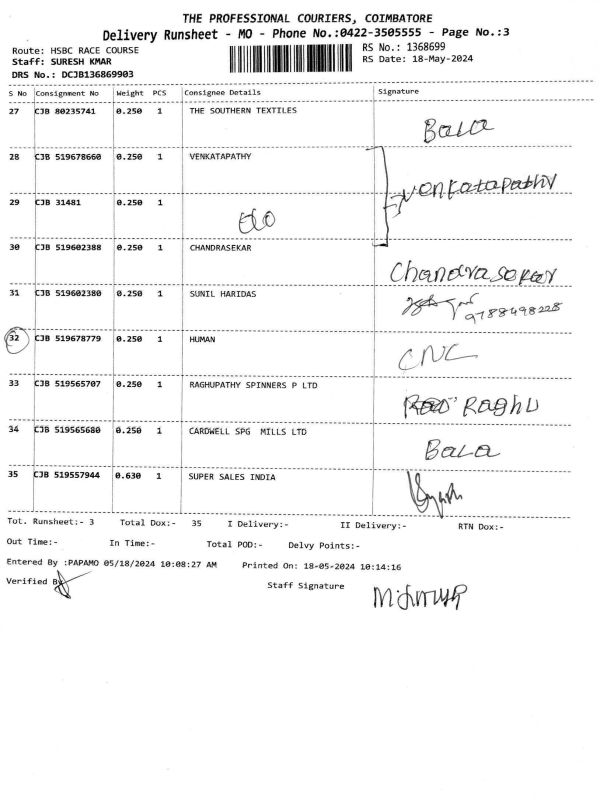 THE PROFESSIONAL COURIERS, COIMBATORE
Delivery Runsheet - MO - Phone No.:0422-3505555 - Page No.:3
Route: HSBC RACE COURSE
Staff: SURESH KMAR
DRS No.: DCJB136869903
RS No.: 1368699
RS Date: 18-May-2024
S No Consignment No Weight PCS Consignee Details Signature
27 CJB 80235741 0.250 1 THE SOUTHERN TEXTILES
Bala
28 CJB 519678660 0.250 1 VENKATAPATHY
venkatapathy
29 CJB 31481 0.250 1
30 CJB 519602388 0.250 1 CHANDRASEKAR
Chandrasekar
31 CJB 519602380 0.250 1 SUNIL HARIDAS
9788498228
32 CJB 519678779 0.250 1 HUMAN
CNC
33 CJB 519565707 0.250 1 RAGHUPATHY SPINNERS P LTD
RaghU
34 CJB 519565680 0.250 1 CARDWELL SPG MILLS LTD
BaLa
35 CJB 519557944 0.630 1 SUPER SALES INDIA
Tot. Runsheet:- 3 Total Dox:- 35 I Delivery:- II Delivery:- RTN Dox:-
Out Time:- In Time:- Total POD:- Delvy Points:-
Entered By :PAPAMO 05/18/2024 10:08:27 AM Printed On: 18-05-2024 10:14:16
Verified By
Staff Signature